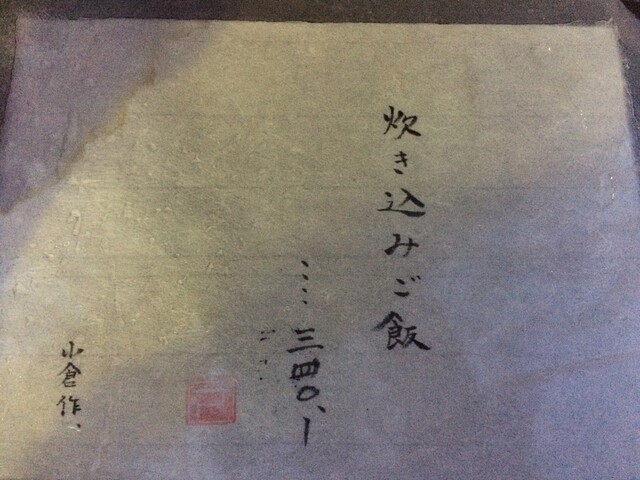 炊き込みご飯
‥‥三四〇、ー
小倉作、